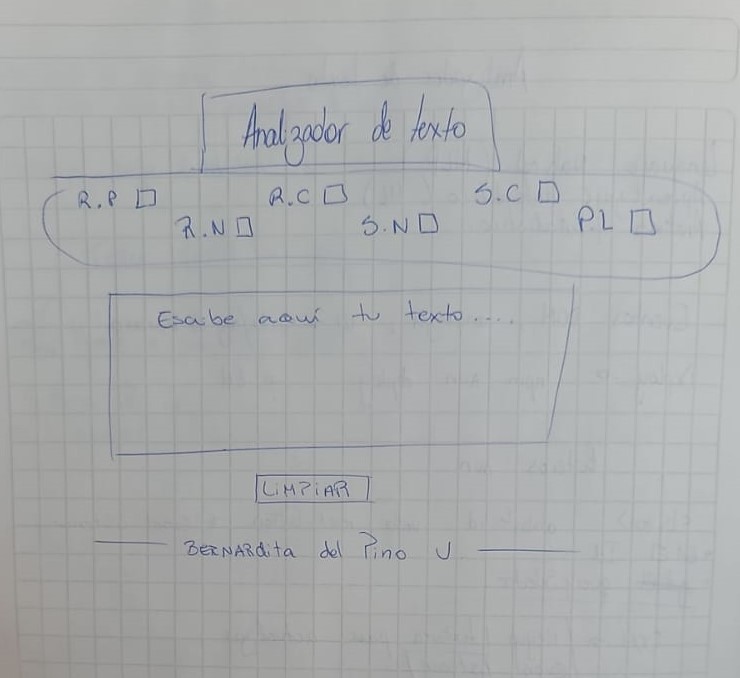 Analizador de texto
R.P R.C S.C
R.N S.N PL
Escribe aquí tu texto....
LIMPIAR
BERNARdita del Pino U